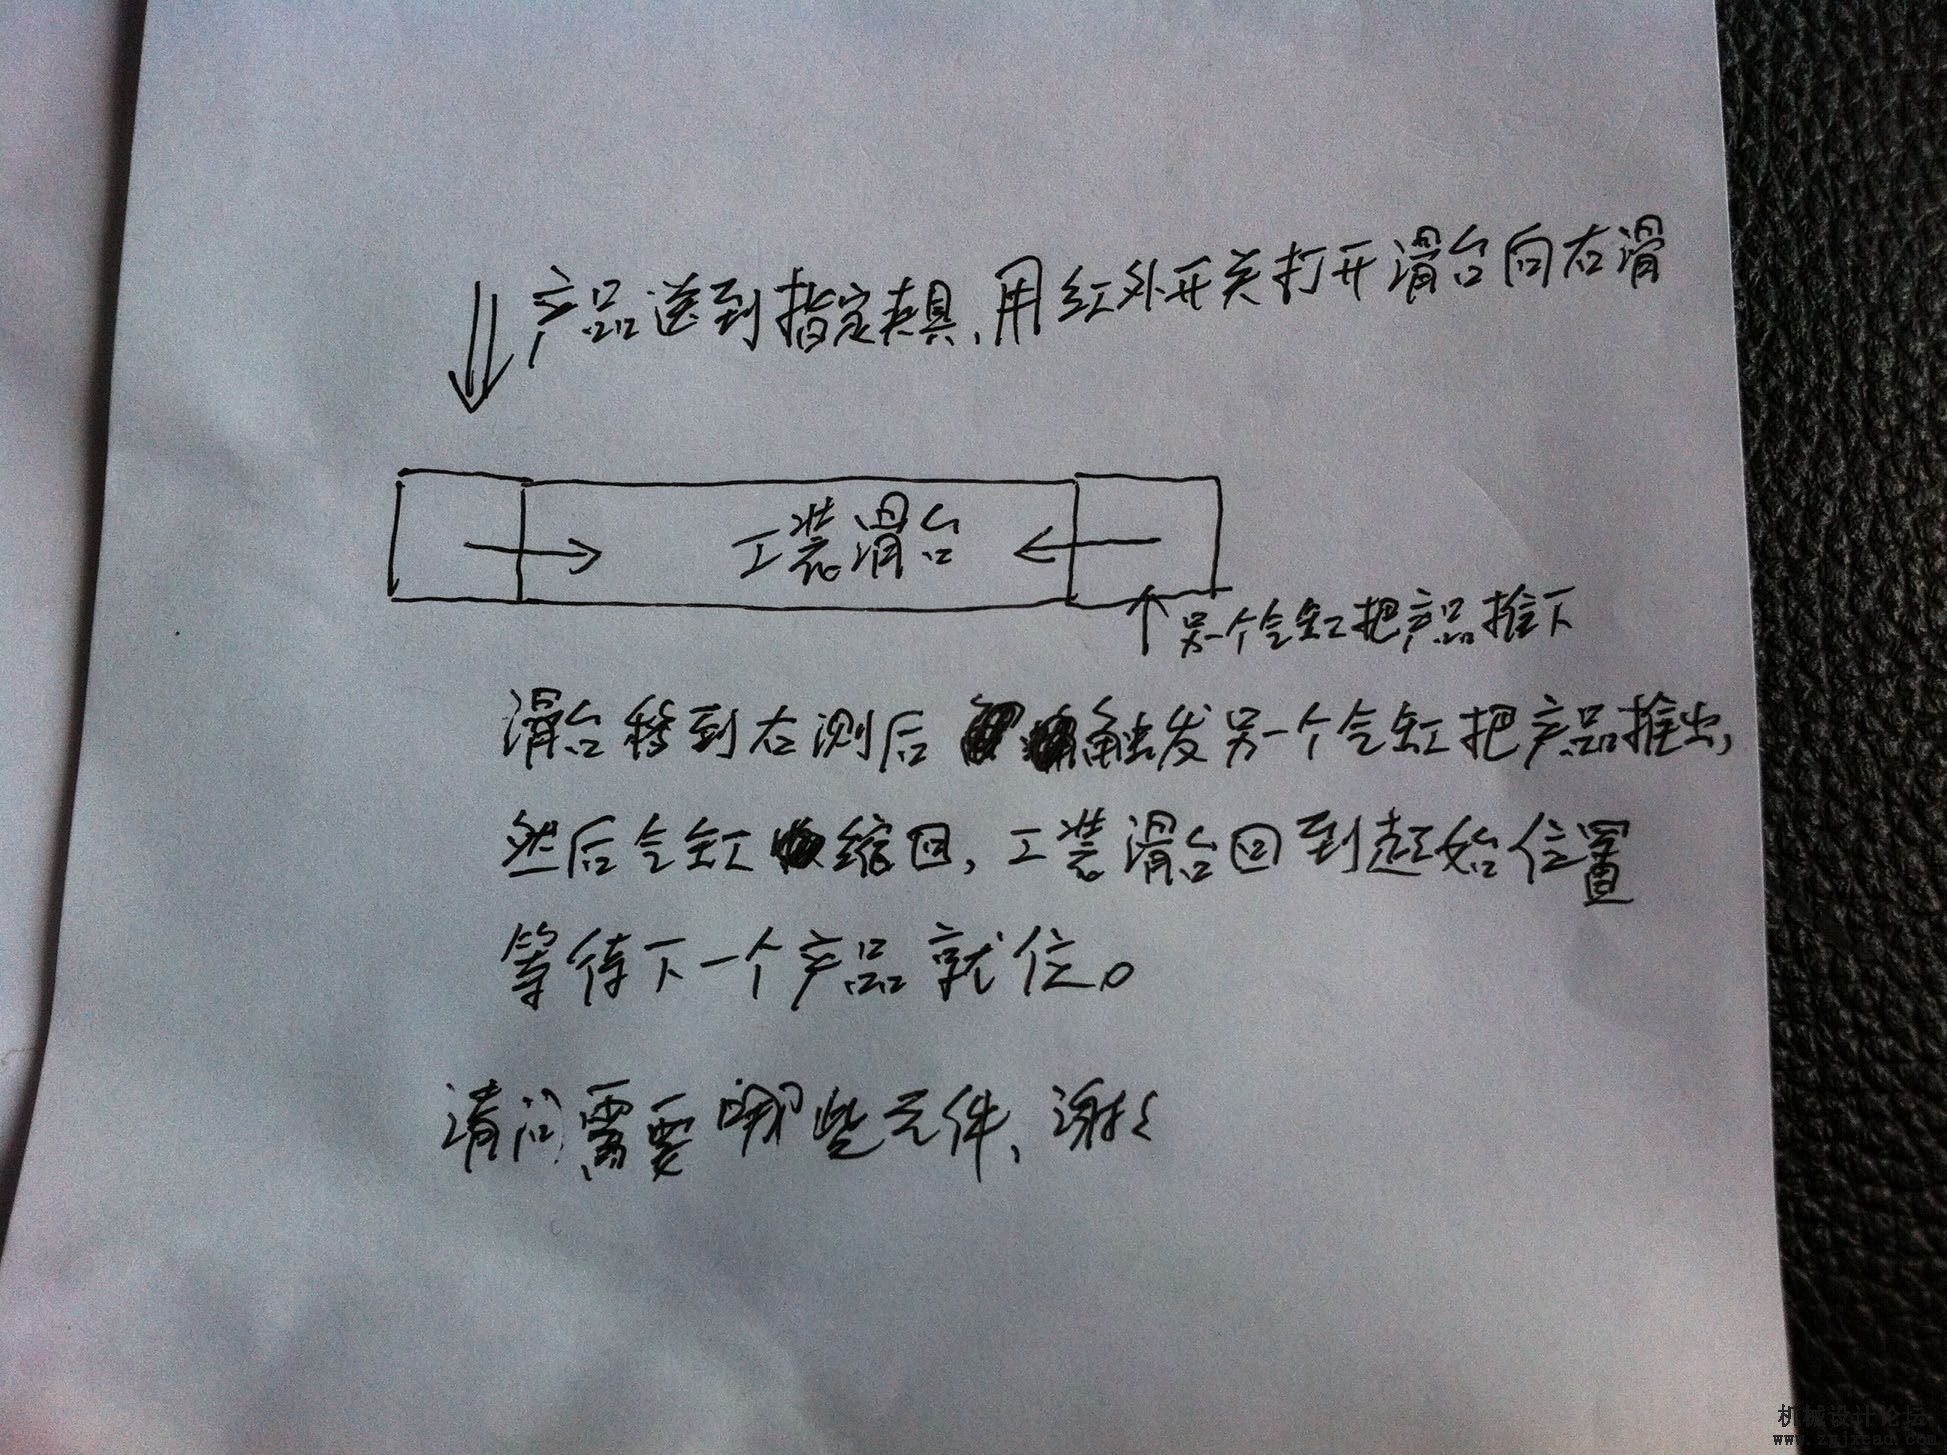 产品送到指定夹具,用红外开关打开滑台向右滑
工装滑台
另一个气缸把产品推下
滑台移到右测后触发另一个气缸把产品推出,
然后气缸缩回,工装滑台回到起始位置
等待下一个产品就位。
请问需要哪些元件、谢谢
机械设计论坛
www.zmjzcad.com